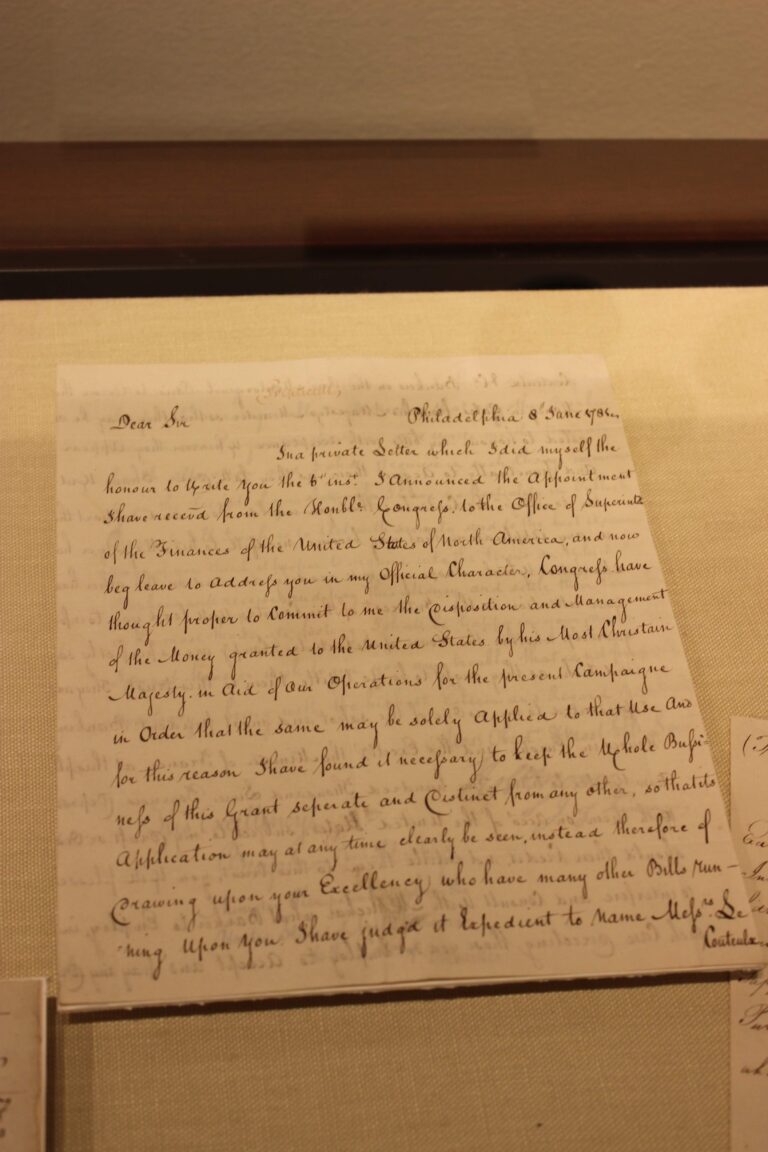 Dear Sir
Philadelphia 8th June 1781.
In a private Letter which I did myself the
honour to Write You the 6th inst. I Announced the Appointment
I have receivd from the Honble. Congress, to the Office of Superintt
of the Finances of the United States of North America, and now
beg leave to Address you in my Official Character, Congress have
thought proper to Commit to me the Disposition and Management
of the Money granted to the United States by his Most Christain
Majesty. in Aid of Our Operations for the present Campaigne
in Order that the same may be solely Applied to that Use And
for this reason I have found it necessary to keep the Whole Bussi-
ness of this Grant seperate and Distinct from any other, so that its
Application may at any time clearly be seen, instead therefore of
Drawing upon your Excellency who have many other Bills run-
ning Upon You I have judg'd it Expedient to Name Messrs. Le
Couteulx